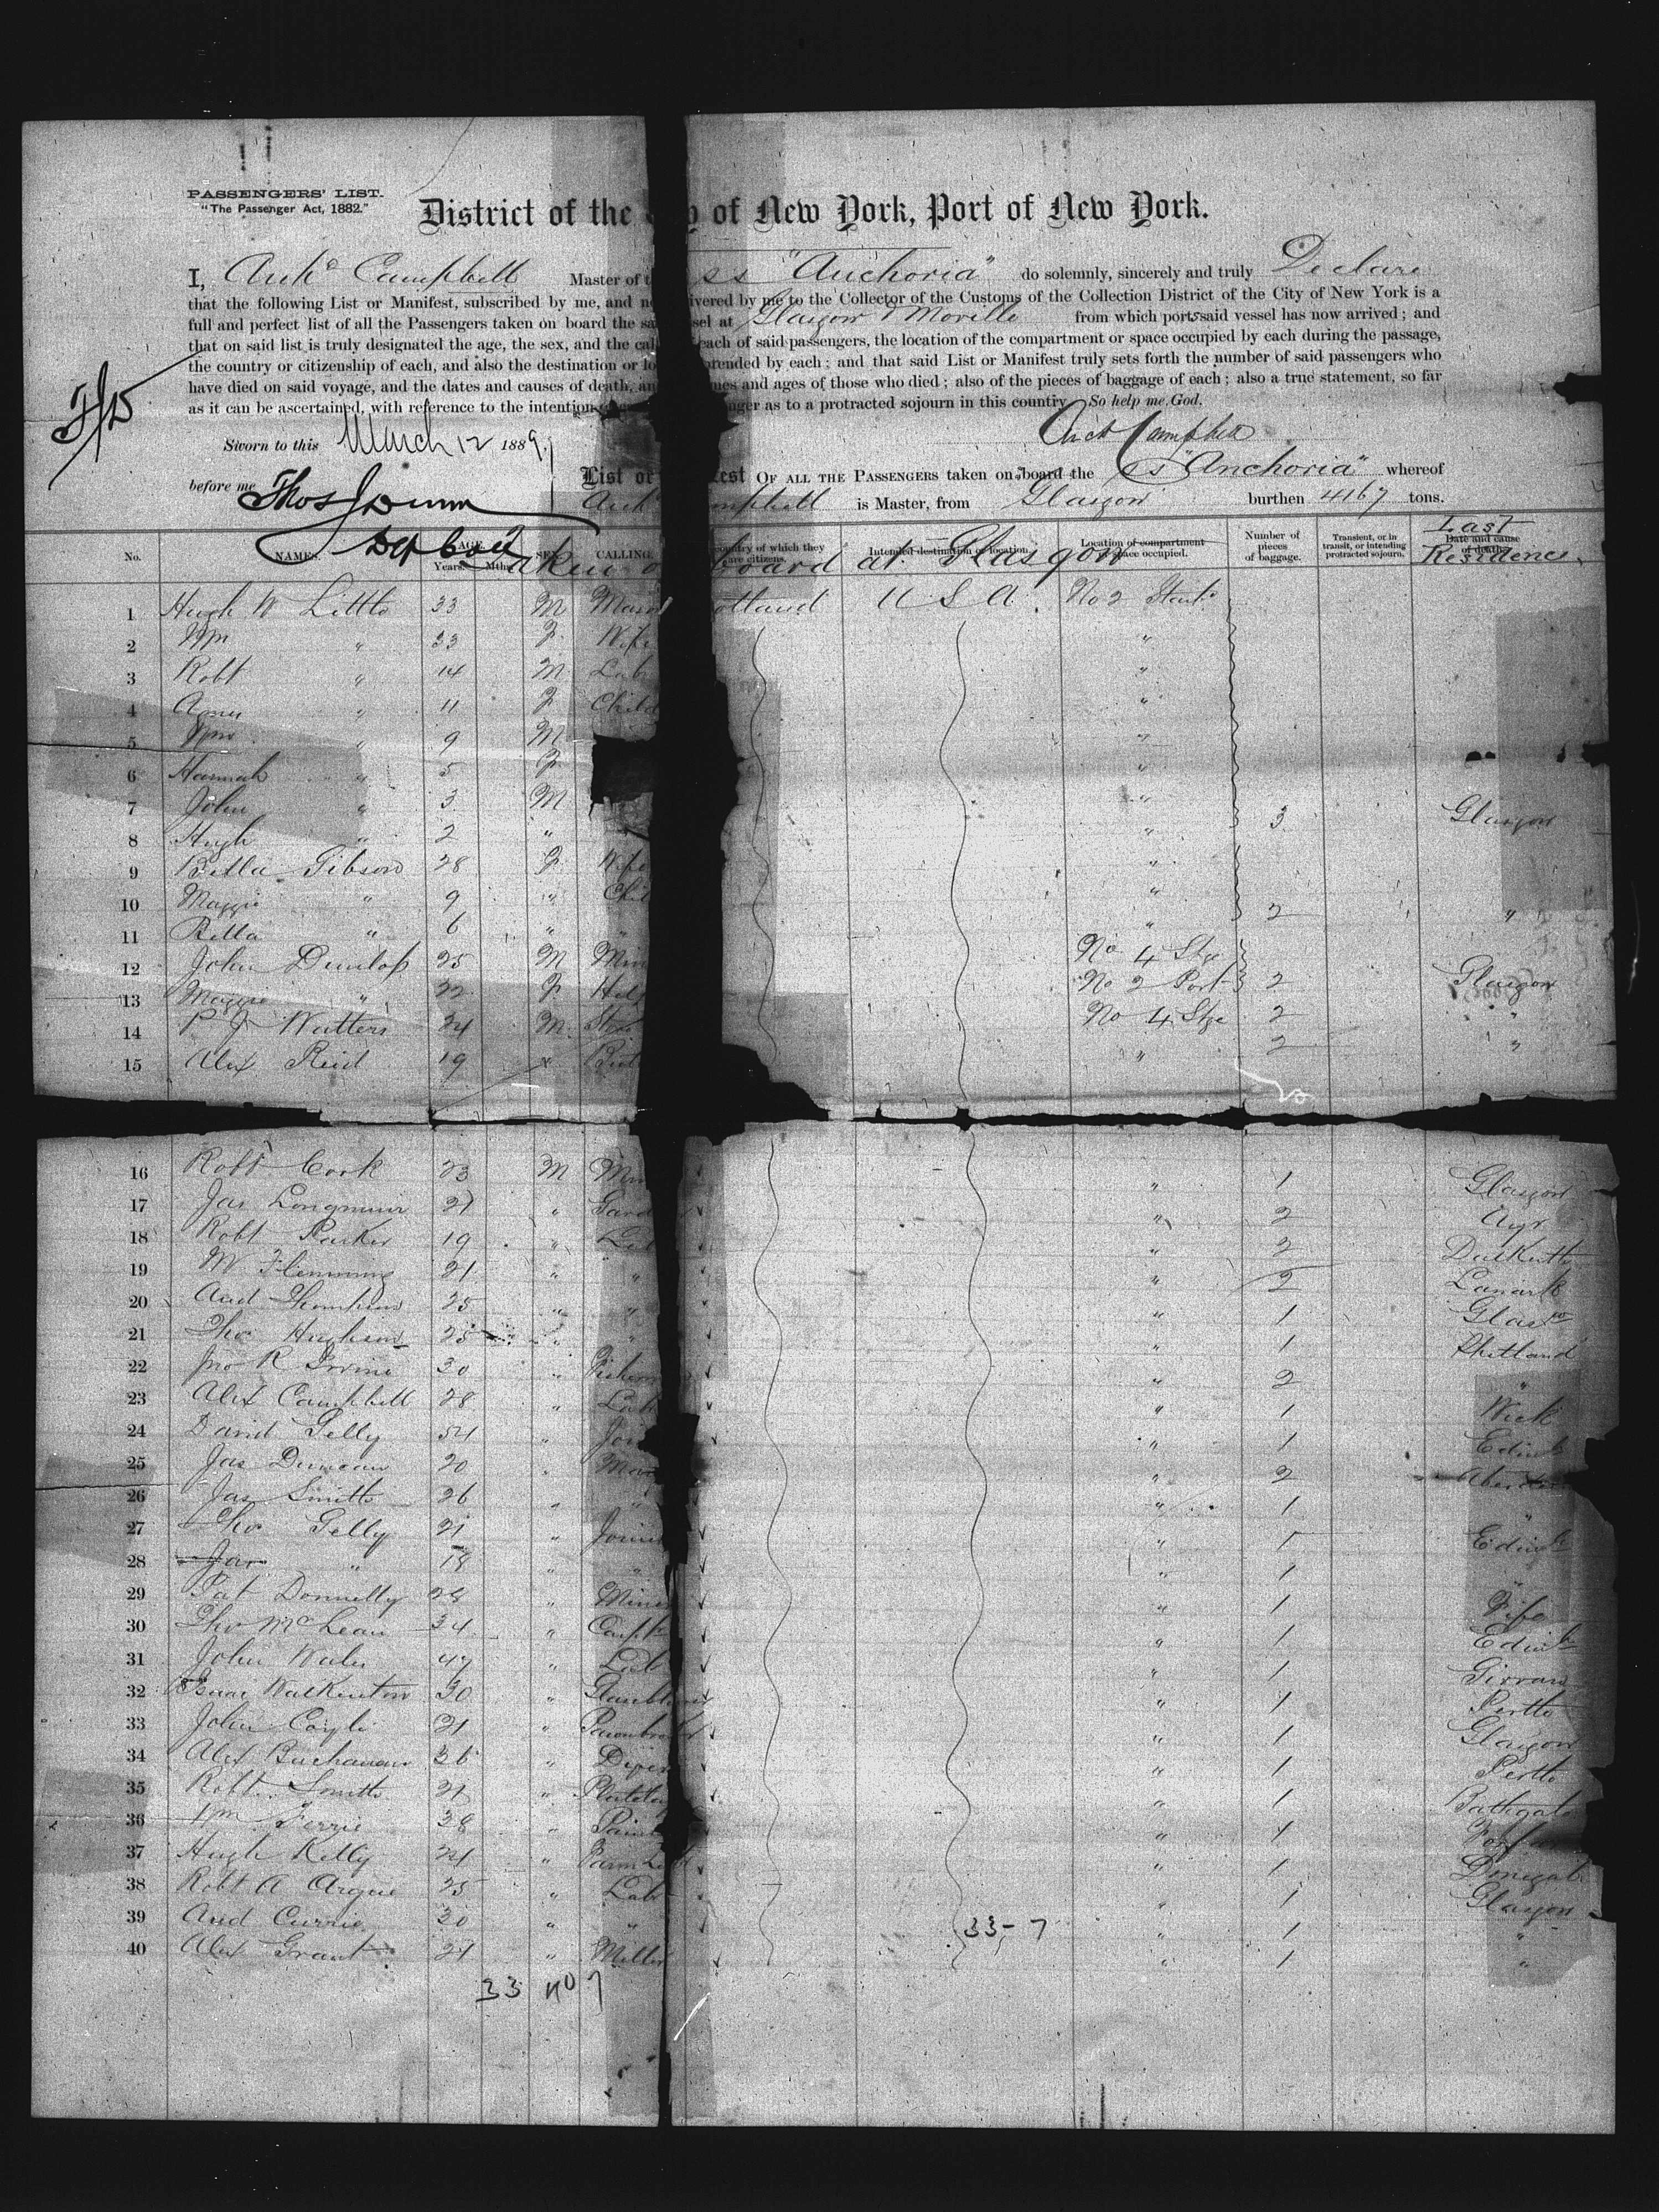 PASSENGERS' LIST.
"The Passenger Act, 1882."
District of the y of New York, Port of New York.
I, Arch'd Campbell Master of t ss "Anchoria" do solemnly, sincerely and truly Declare
that the following List or Manifest, subscribed by me, and n ivered by me to the Collector of the Customs of the Collection District of the City of New York is a
full and perfect list of all the Passengers taken on board the sa sel at Glasgow & Moville from which ports said vessel has now arrived; and
that on said list is truly designated the age, the sex, and the cal each of said passengers, the location of the compartment or space occupied by each during the passage,
the country or citizenship of each, and also the destination or lo tended by each; and that said List or Manifest truly sets forth the number of said passengers who
have died on said voyage, and the dates and causes of death, an mes and ages of those who died; also of the pieces of baggage of each; also a true statement, so far
as it can be ascertained, with reference to the intention nger as to a protracted sojourn in this country. So help me God.
Arch Campbell
Sworn to this March 12 1889.
before me Thos J Dunn
Dep Coll
List or fest OF ALL THE PASSENGERS taken on board the ss "Anchoria" whereof
Arch mpbell is Master, from Glasgow burthen 4167 tons.
No. NAMES. AGE. Years. Mths. SEX. CALLING. country of which they are citizens. Intended destination or location. Location of compartment or space occupied. Number of pieces of baggage. Transient, or in transit, or intending protracted sojourn. Date and cause of death. Last Residence.
aken o board at Glasgow
1 Hugh W Little 33 M Mason otland U S A. No 2 Starb.
2 Mrs " 33 F Wife "
3 Robt " 14 M Lab "
4 Agnes " 11 F Child "
5 Wm " 9 M "
6 Hannah " 5 F "
7 John " 3 M "
8 Hugh " 2 " " 3 Glasgow
9 Bella Gibson 28 F Wife "
10 Maggie " 9 " Chil "
11 Bella " 6 " " 2 "
12 John Dunlop 25 M Min No 4 Stge
13 Maggie " 22 F No 2 Port 2 Glasgow
14 P J Watters 24 M No 4 Stge 2 "
15 Alex Reid 19 " 2 "
16 Robt Cork 23 M Min " 1 Glasgow
17 Jas Longmuir 21 " Gard " 2 Ayr
18 Robt Parker 19 " Lab " 2 Dalkeith
19 W Flemming 21 " " " 2 Lanark
20 And Thompson 25 " " " 1 Glasw
21 Tho Hughson 25 " " " 1 Shetland
22 Jno R Irvine 30 " Fisherm " 2 "
23 Alex Campbell 28 " Lab " 1 Wick
24 David Gelly 54 " Join " 1 Edinb
25 Jas Duncan 20 " Mas " 2 Aberdeen
26 Jas Smith 26 " " " 1 "
27 Tho Gelly 21 " Joiner " 1 Edinb
28 Jas " 18 " " " 1 "
29 Pat Donnelly 28 " Miner " 1 Fife
30 Tho McLean 34 " Carptr " 1 Edinb
31 John Wales 47 " Lab " 1 Girvan
32 Isaac Walkenton 30 " " 1 Perth
33 John Coyle 21 " Pawnbroker " 1 Glasgow
34 Alex Buchanan 36 " " 1 Perth
35 Robt Smith 21 " " 1 Bathgate
36 Wm Perrie 38 " Paint " 1
37 Hugh Kelly 24 " Farm Lab " 1 Donegal
38 Robt A Argue 25 " Lab " 1 Glasgow
39 And Currie 30 " " " 1 "
40 Alex Grant 21 " Miller " 1 "
33-7
33 no 7